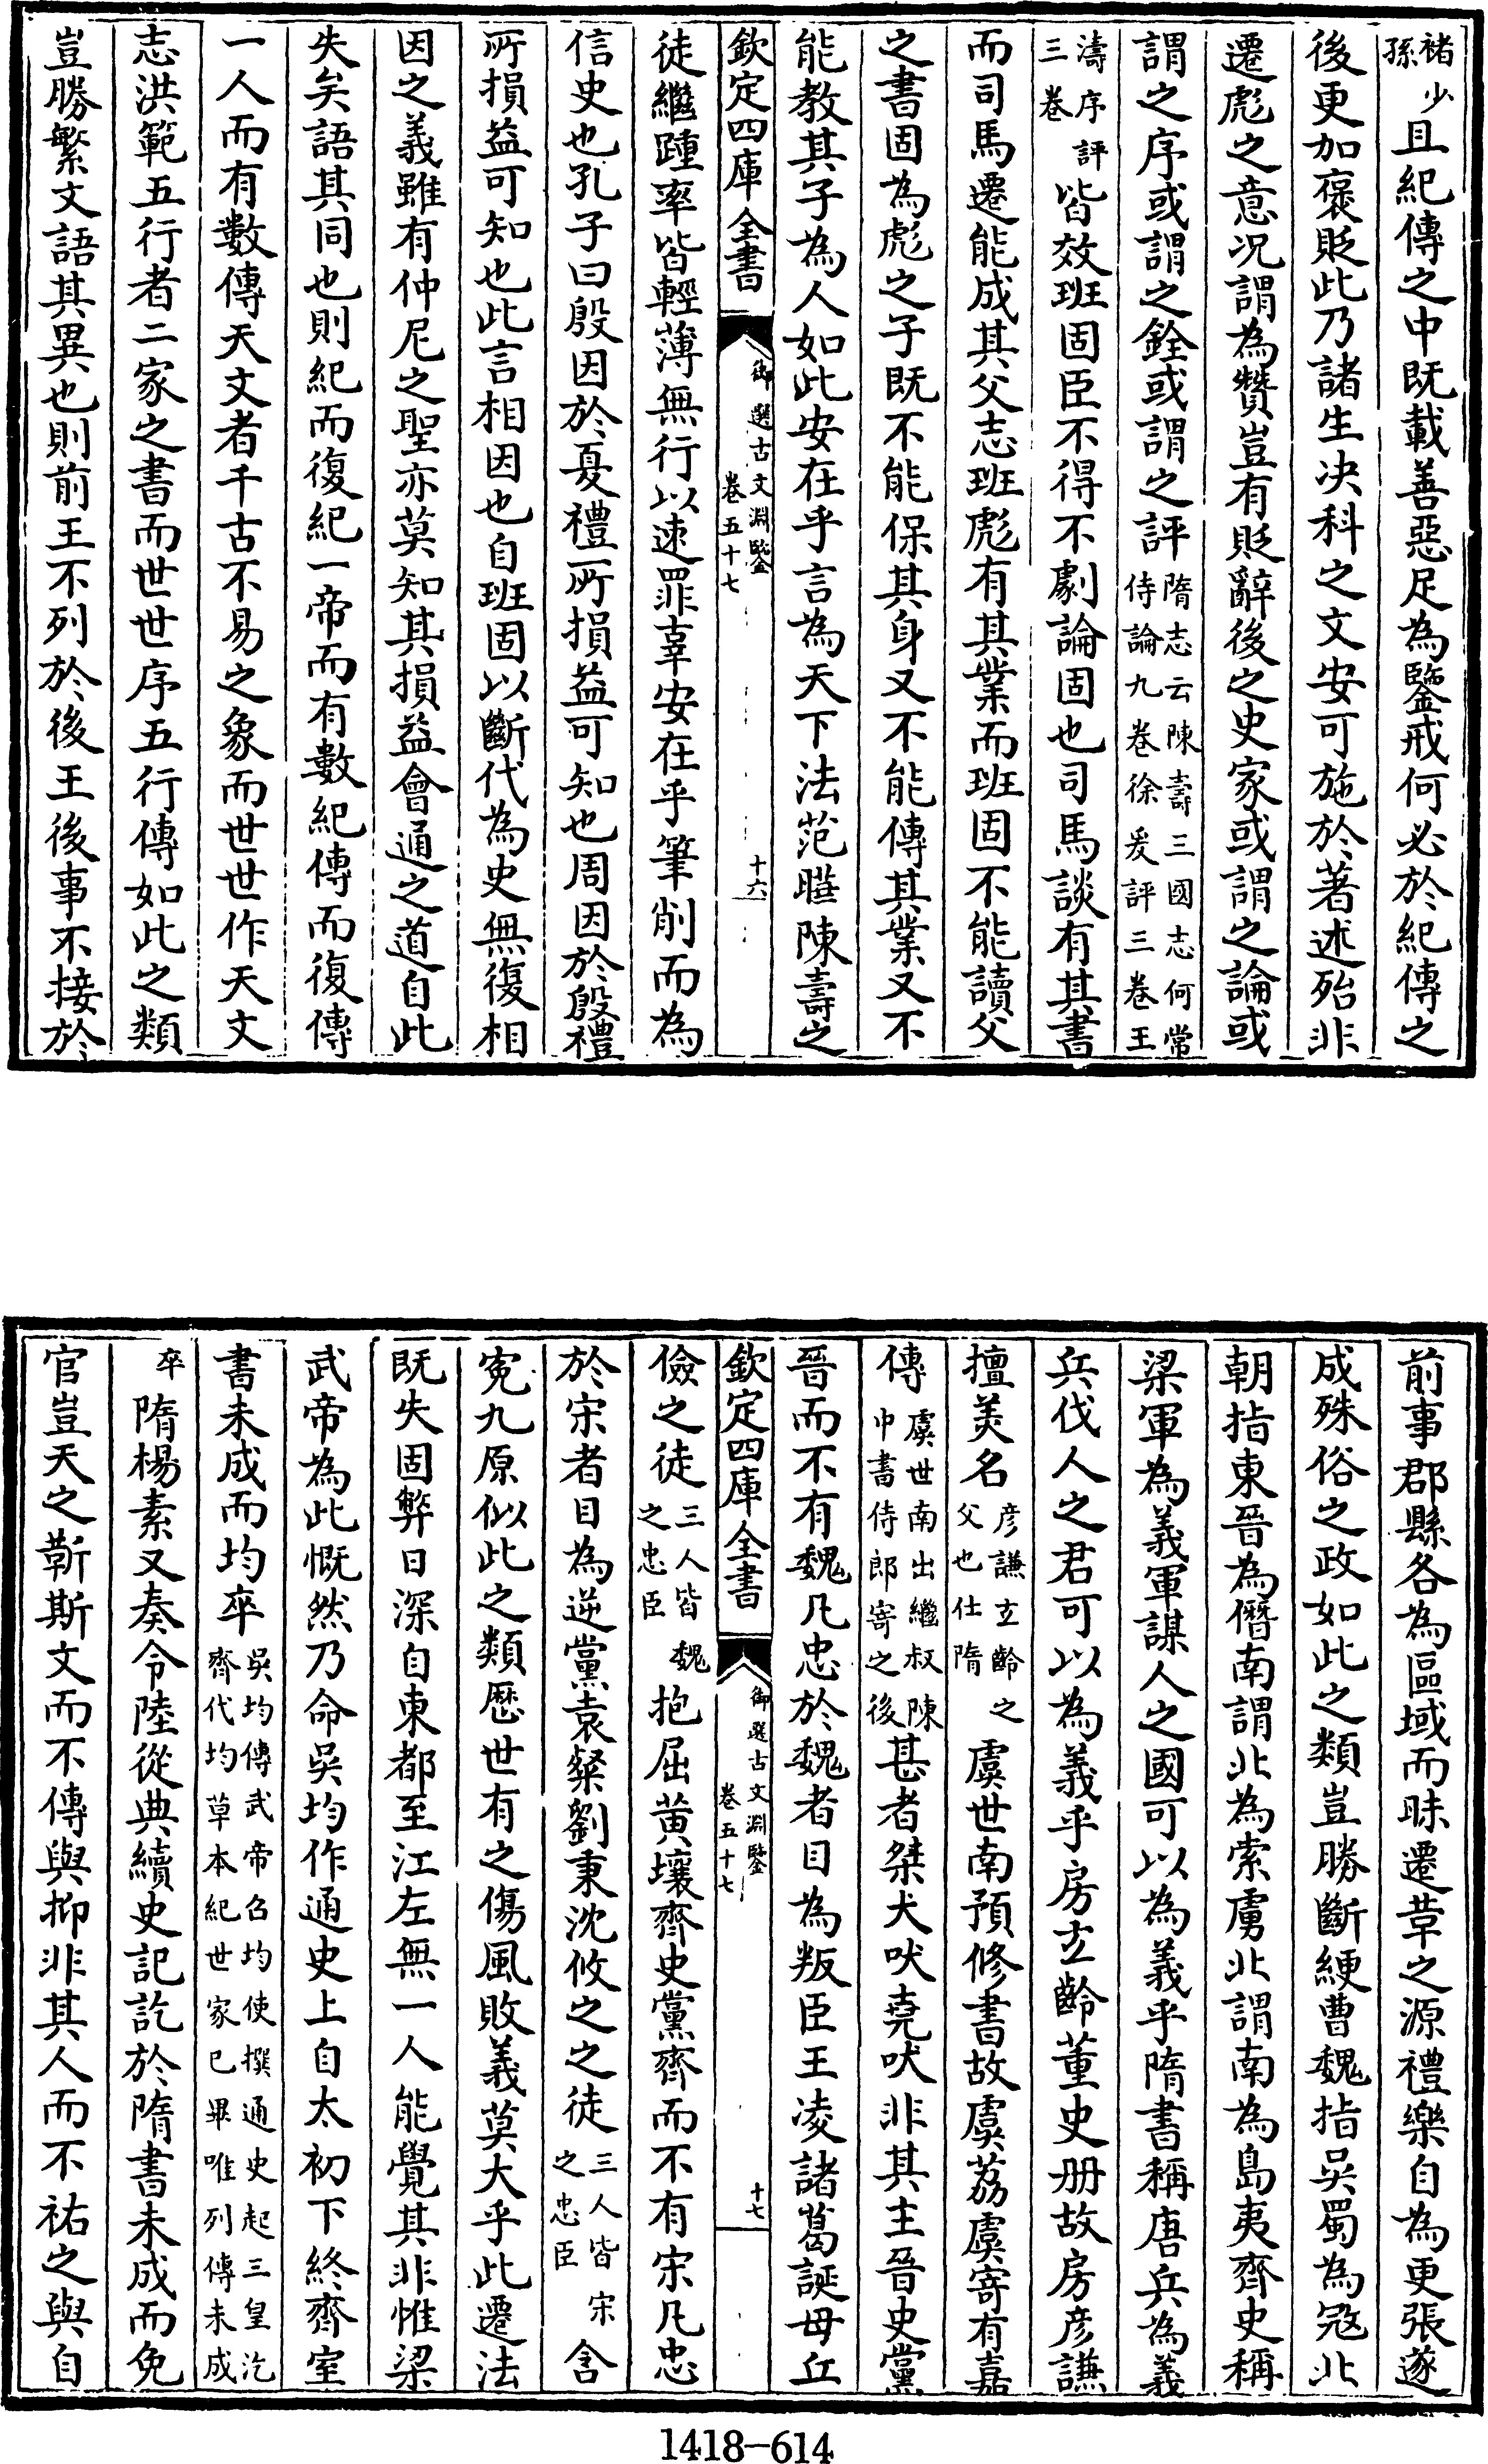 褚少孫且紀傳之中既載善惡足為鑒戒何必於紀傳之
後更加褒貶此乃諸生决科之文安可施於著述殆非
遷彪之意况謂為贊豈有貶辭後之史家或謂之論或
謂之序或謂之銓或謂之評隋志云陳壽三國志何常侍論九卷徐爰評三卷王
濤序評三卷皆效班固臣不得不劇論固也司馬談有其書
而司馬遷能成其父志班彪有其業而班固不能讀父
之書固為彪之子既不能保其身又不能傳其業又不
能教其子為人如此安在乎言為天下法范曄陳壽之
欽定四庫全書 御選古文淵鑒 卷五十七 十六
徒繼踵率皆輕薄無行以速罪辜安在乎筆削而為
信史也孔子曰殷因於夏禮所損益可知也周因於殷禮
所損益可知也此言相因也自班固以斷代為史無復相
因之義雖有仲尼之聖亦莫知其損益會通之道自此
失矣語其同也則紀而復紀一帝而有數紀傳而復傳
一人而有數傳天文者千古不易之象而世世作天文
志洪範五行者二家之書而世世序五行傳如此之類
豈勝繁文語其異也則前王不列於後王後事不接於
前事郡縣各為區域而昧遷革之源禮樂自為更張遂
成殊俗之政如此之類豈勝斷綆曹魏指吳蜀為寇北
朝指東晉為僭南謂北為索虜北謂南為島夷齊史稱
梁軍為義軍謀人之國可以為義乎隋書稱唐兵為義
兵伐人之君可以為義乎房玄齡董史册故房彦謙
擅美名彦謙玄齡之父也仕隋虞世南預修書故虞荔虞寄有嘉
傳虞世南出繼叔陳中書侍郎寄之後甚者桀犬吠堯吠非其主晉史黨
晉而不有魏凡忠於魏者目為叛臣王凌諸葛誕毋丘
欽定四庫全書 御選古文淵鑒 卷五十七 十七
儉之徒三人皆魏之忠臣抱屈黄壤齊史黨齊而不有宋凡忠
於宋者目為逆黨袁粲劉秉沈攸之之徒三人皆宋之忠臣含
寃九原似此之類歷世有之傷風敗義莫大乎此遷法
既失固弊日深自東都至江左無一人能覺其非惟梁
武帝為此慨然乃命吳均作通史上自太初下終齊室
書未成而均卒吳均傳武帝召均使撰通史起三皇訖齊代均草本紀世家已畢唯列傳未成
卒隋楊素又奏令陸從典續史記訖於隋書未成而免
官豈天之靳斯文而不傳與抑非其人而不祐之與自
1418-614